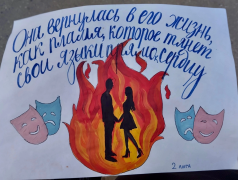 Она вернулась в его жизнь,
как пламя, которое тянет
свои языки прямо к сердцу
2